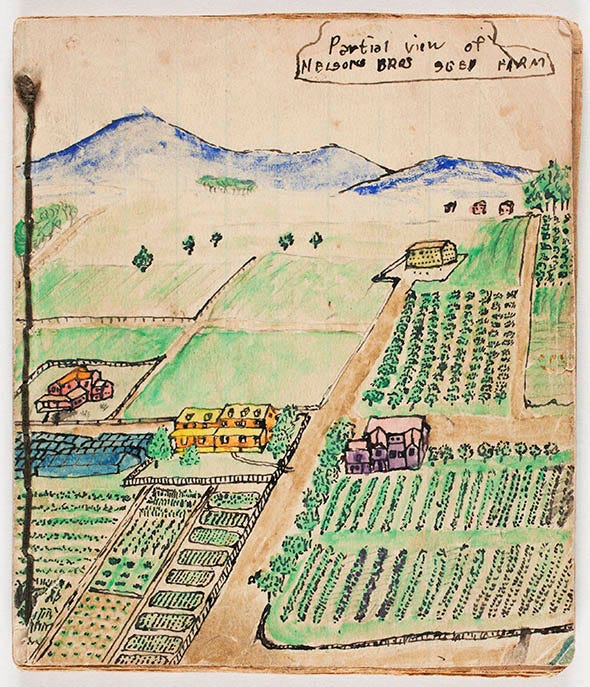 Partial view of
NELSONS BROS SEED FARM